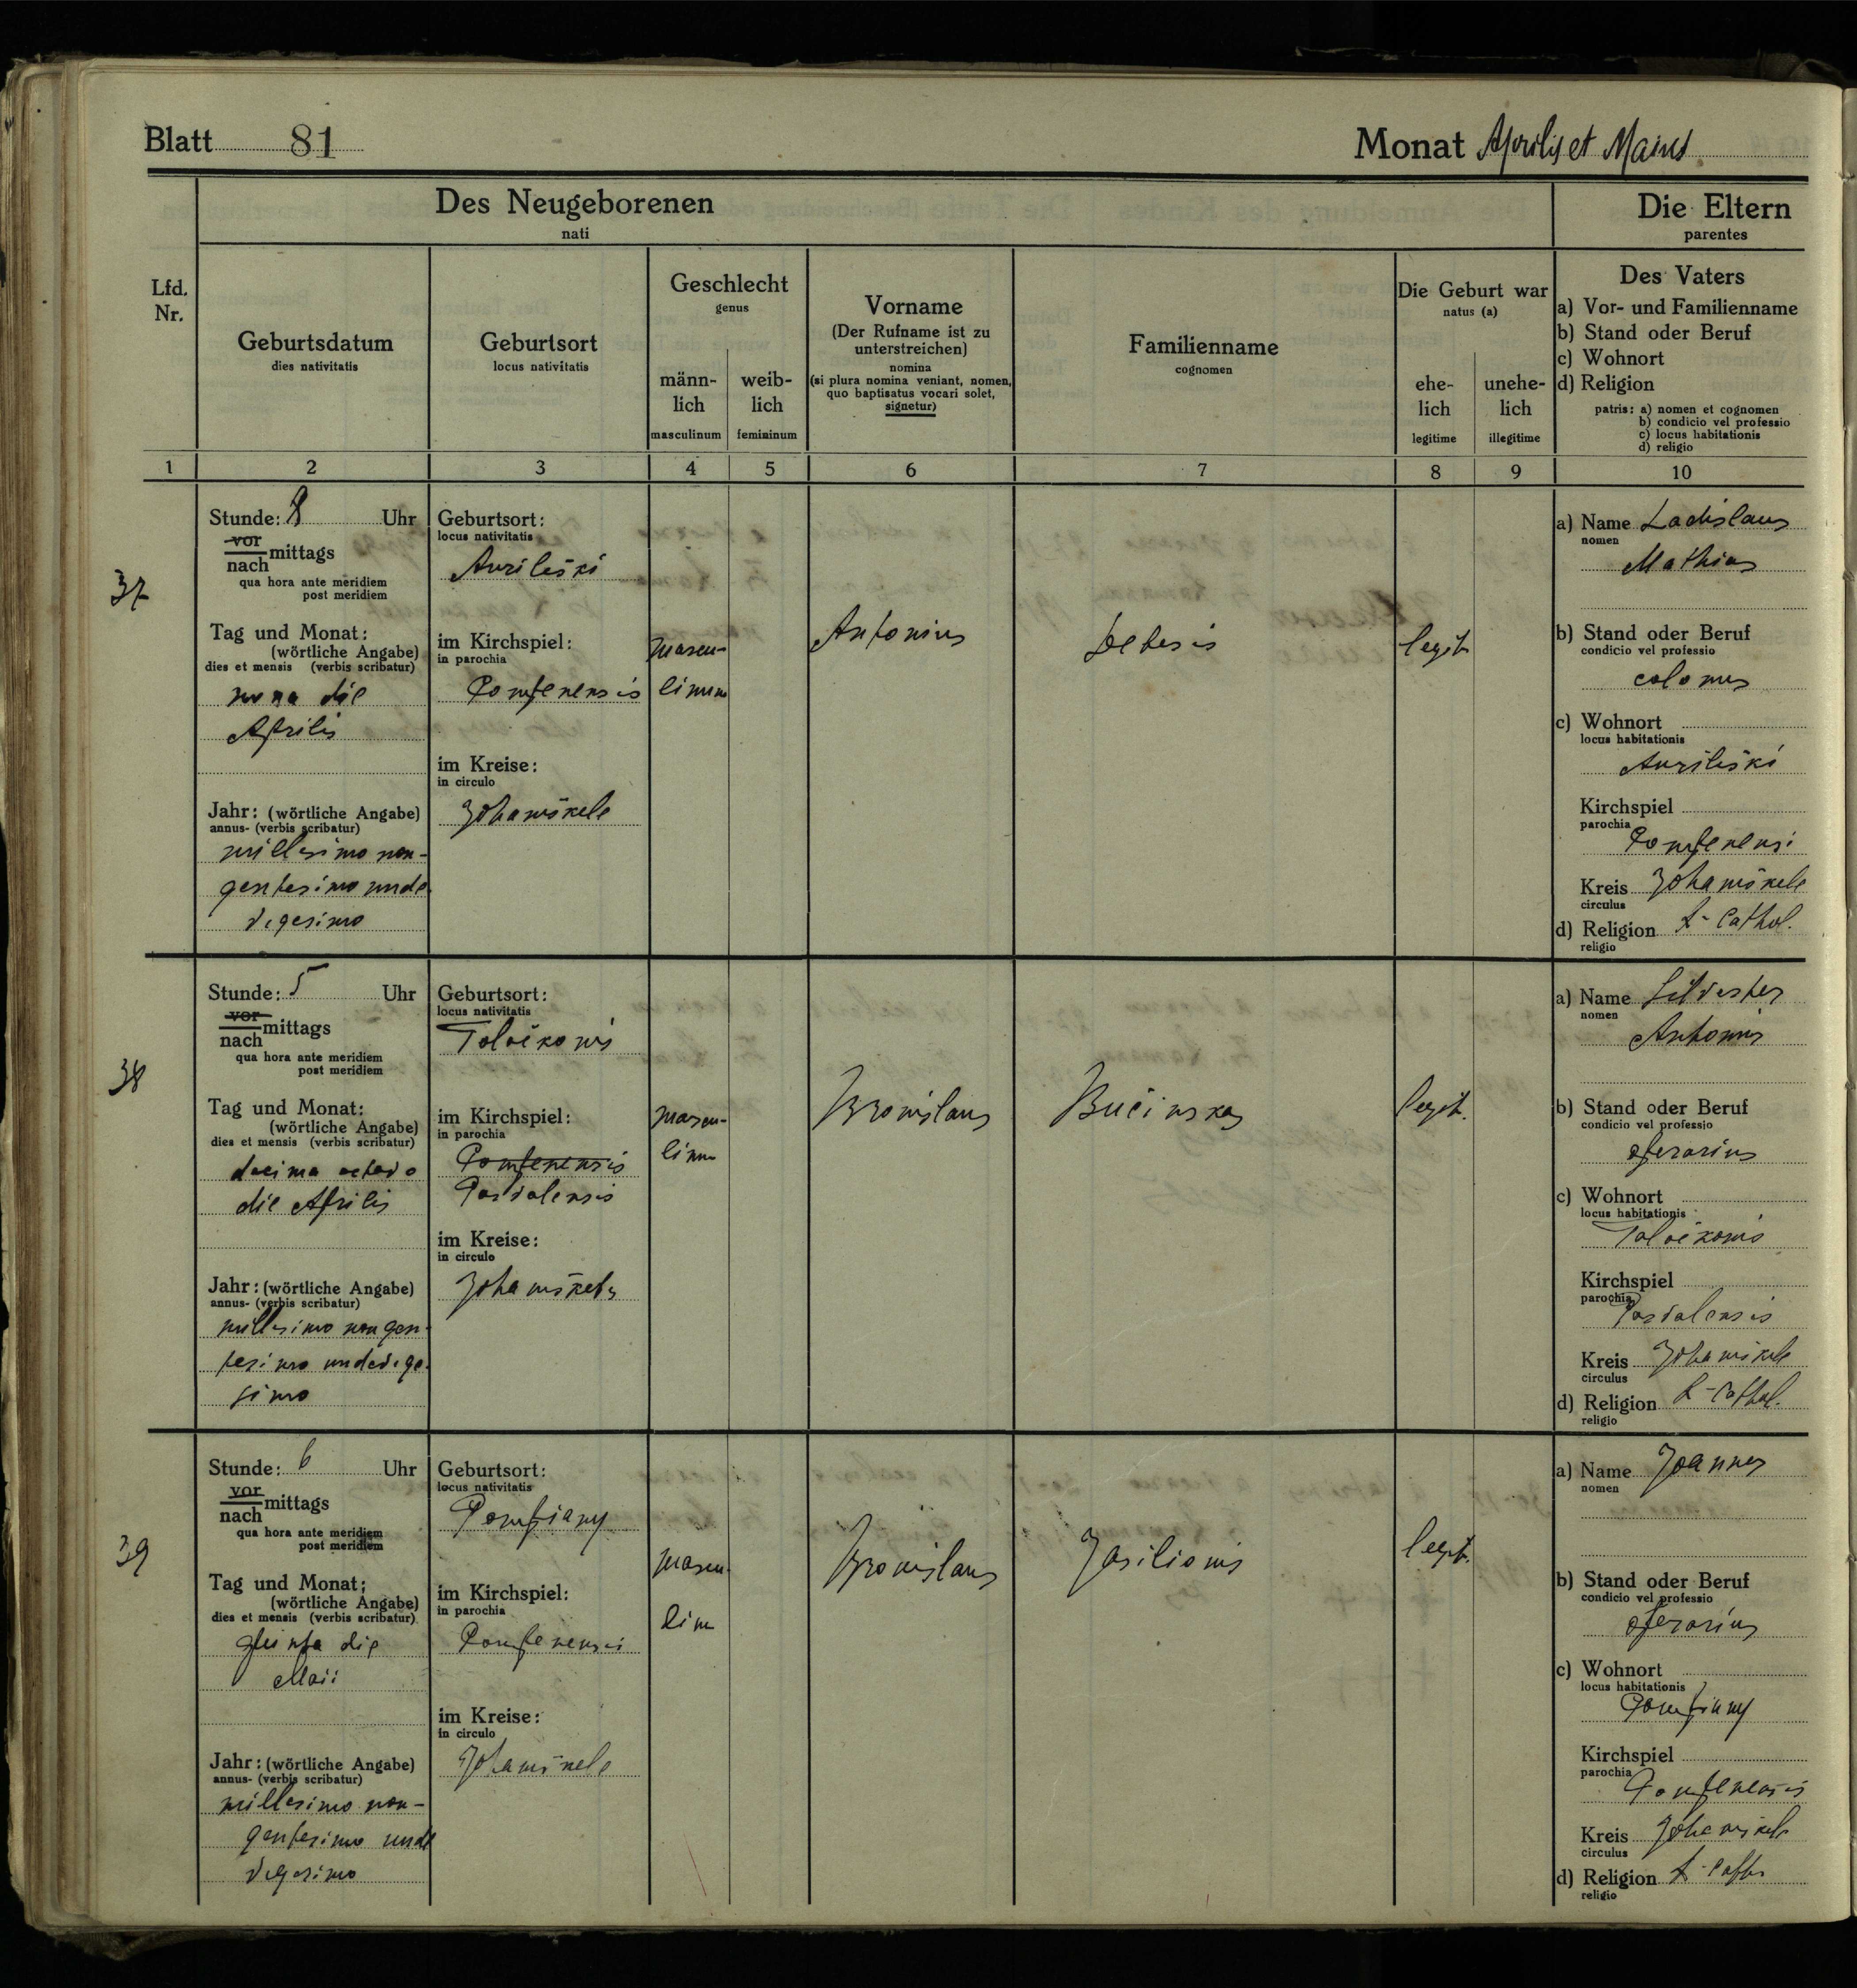 Blatt 81
Monat Aprilis et Maius
Des Neugeborenen
nati
Die Eltern
parentes
Lfd.
Nr.
Geburtsdatum
dies nativitatis
Geburtsort
locus nativitatis
Geschlecht
genus
männ-
lich
masculinum
weib-
lich
femininum
Vorname
(Der Rufname ist zu
unterstreichen)
nomina
(si plura nomina veniant, nomen,
quo baptisatus vocari solet,
signetur)
Familienname
cognomen
Die Geburt war
natus (a)
ehe-
lich
legitime
unehe-
lich
illegitime
Des Vaters
a) Vor- und Familienname
b) Stand oder Beruf
c) Wohnort
d) Religion
patris: a) nomen et cognomen
b) condicio vel professio
c) locus habitationis
d) religio
1 2 3 4 5 6 7 8 9 10
37
Stunde: 8 Uhr
vor
nach mittags
qua hora ante meridiem
post meridiem
Tag und Monat:
(wörtliche Angabe)
dies et mensis (verbis scribatur)
nona die
Aprilis
Jahr: (wörtliche Angabe)
annus- (verbis scribatur)
millesimo non-
gentesimo unde
vigesimo
Geburtsort:
locus nativitatis
Auriliški
im Kirchspiel:
in parochia
Pompenensis
im Kreise:
in circulo
Johaniškele
mascu-
linum
Antonius
legit.
a) Name Ladislaus
nomen
Mathias
b) Stand oder Beruf
condicio vel professio
colonus
c) Wohnort
locus habitationis
Auriliški
Kirchspiel
parochia
Pompenensi
Kreis Johaniškele
circulus
d) Religion r-cathol.
religio
38
Stunde: 5 Uhr
vor
nach mittags
qua hora ante meridiem
post meridiem
Tag und Monat:
(wörtliche Angabe)
dies et mensis (verbis scribatur)
decima octava
die Aprilis
Jahr: (wörtliche Angabe)
annus- (verbis scribatur)
millesimo nongen-
tesimo undevige-
simo
Geburtsort:
locus nativitatis
Toločkonis
im Kirchspiel:
in parochia
Pompenensis
Posvolensis
im Kreise:
in circulo
Johaniškely
mascu-
linu
Bronislaus
Bučinskas
legit.
a) Name Silvester
nomen
Antonius
b) Stand oder Beruf
condicio vel professio
operarius
c) Wohnort
locus habitationis
Toločkonis
Kirchspiel
parochia
Posvolensis
Kreis Johaniškele
circulus
d) Religion r-cathol.
religio
39
Stunde: 6 Uhr
vor
nach mittags
qua hora ante meridiem
post meridiem
Tag und Monat;
(wörtliche Angabe)
dies et mensis (verbis scribatur)
quinta die
Maii
Jahr: (wörtliche Angabe)
annus- (verbis scribatur)
millesimo non-
gentesimo unde
vigesimo
Geburtsort:
locus nativitatis
Pompiany
im Kirchspiel:
in parochia
Pompenensis
im Kreise:
in circulo
Johaniškele
mascu-
linu
Bronislaus
Jasilionis
legit.
a) Name Joannes
nomen
b) Stand oder Beruf
condicio vel professio
operarius
c) Wohnort
locus habitationis
Pompiany
Kirchspiel
parochia
Pompenensis
Kreis Johaniškele
circulus
d) Religion
religio